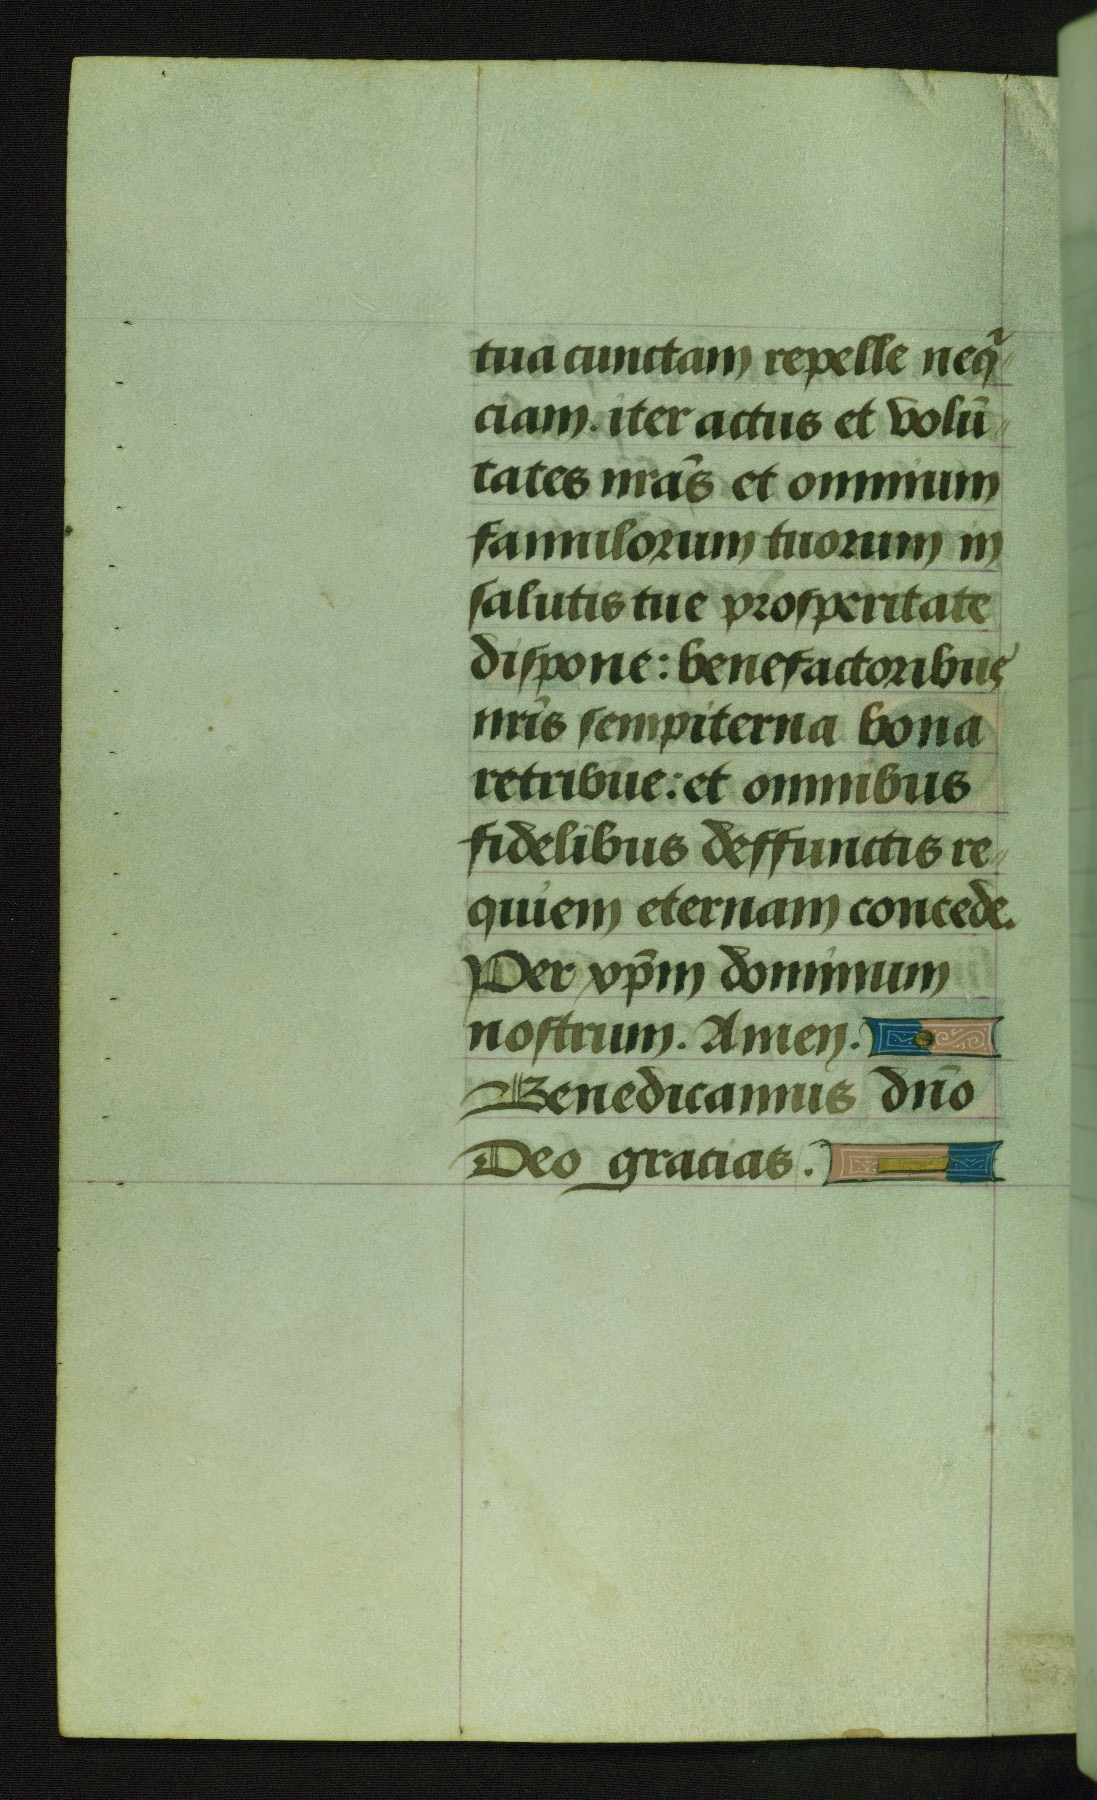 tua cunctam repelle neq̃
ciam. iter actus et volũ
tates nr̃as et omnium
famulorum tuorum in
salutis tue prosperitate
dispone: benefactoribus
nr̃is sempiterna bona
retribue: et omnibus
fidelibus deffunctis re
quiem eternam concede.
Per xp̃m dominum
nostrum. Amen.
Benedicamus dño
Deo gracias.